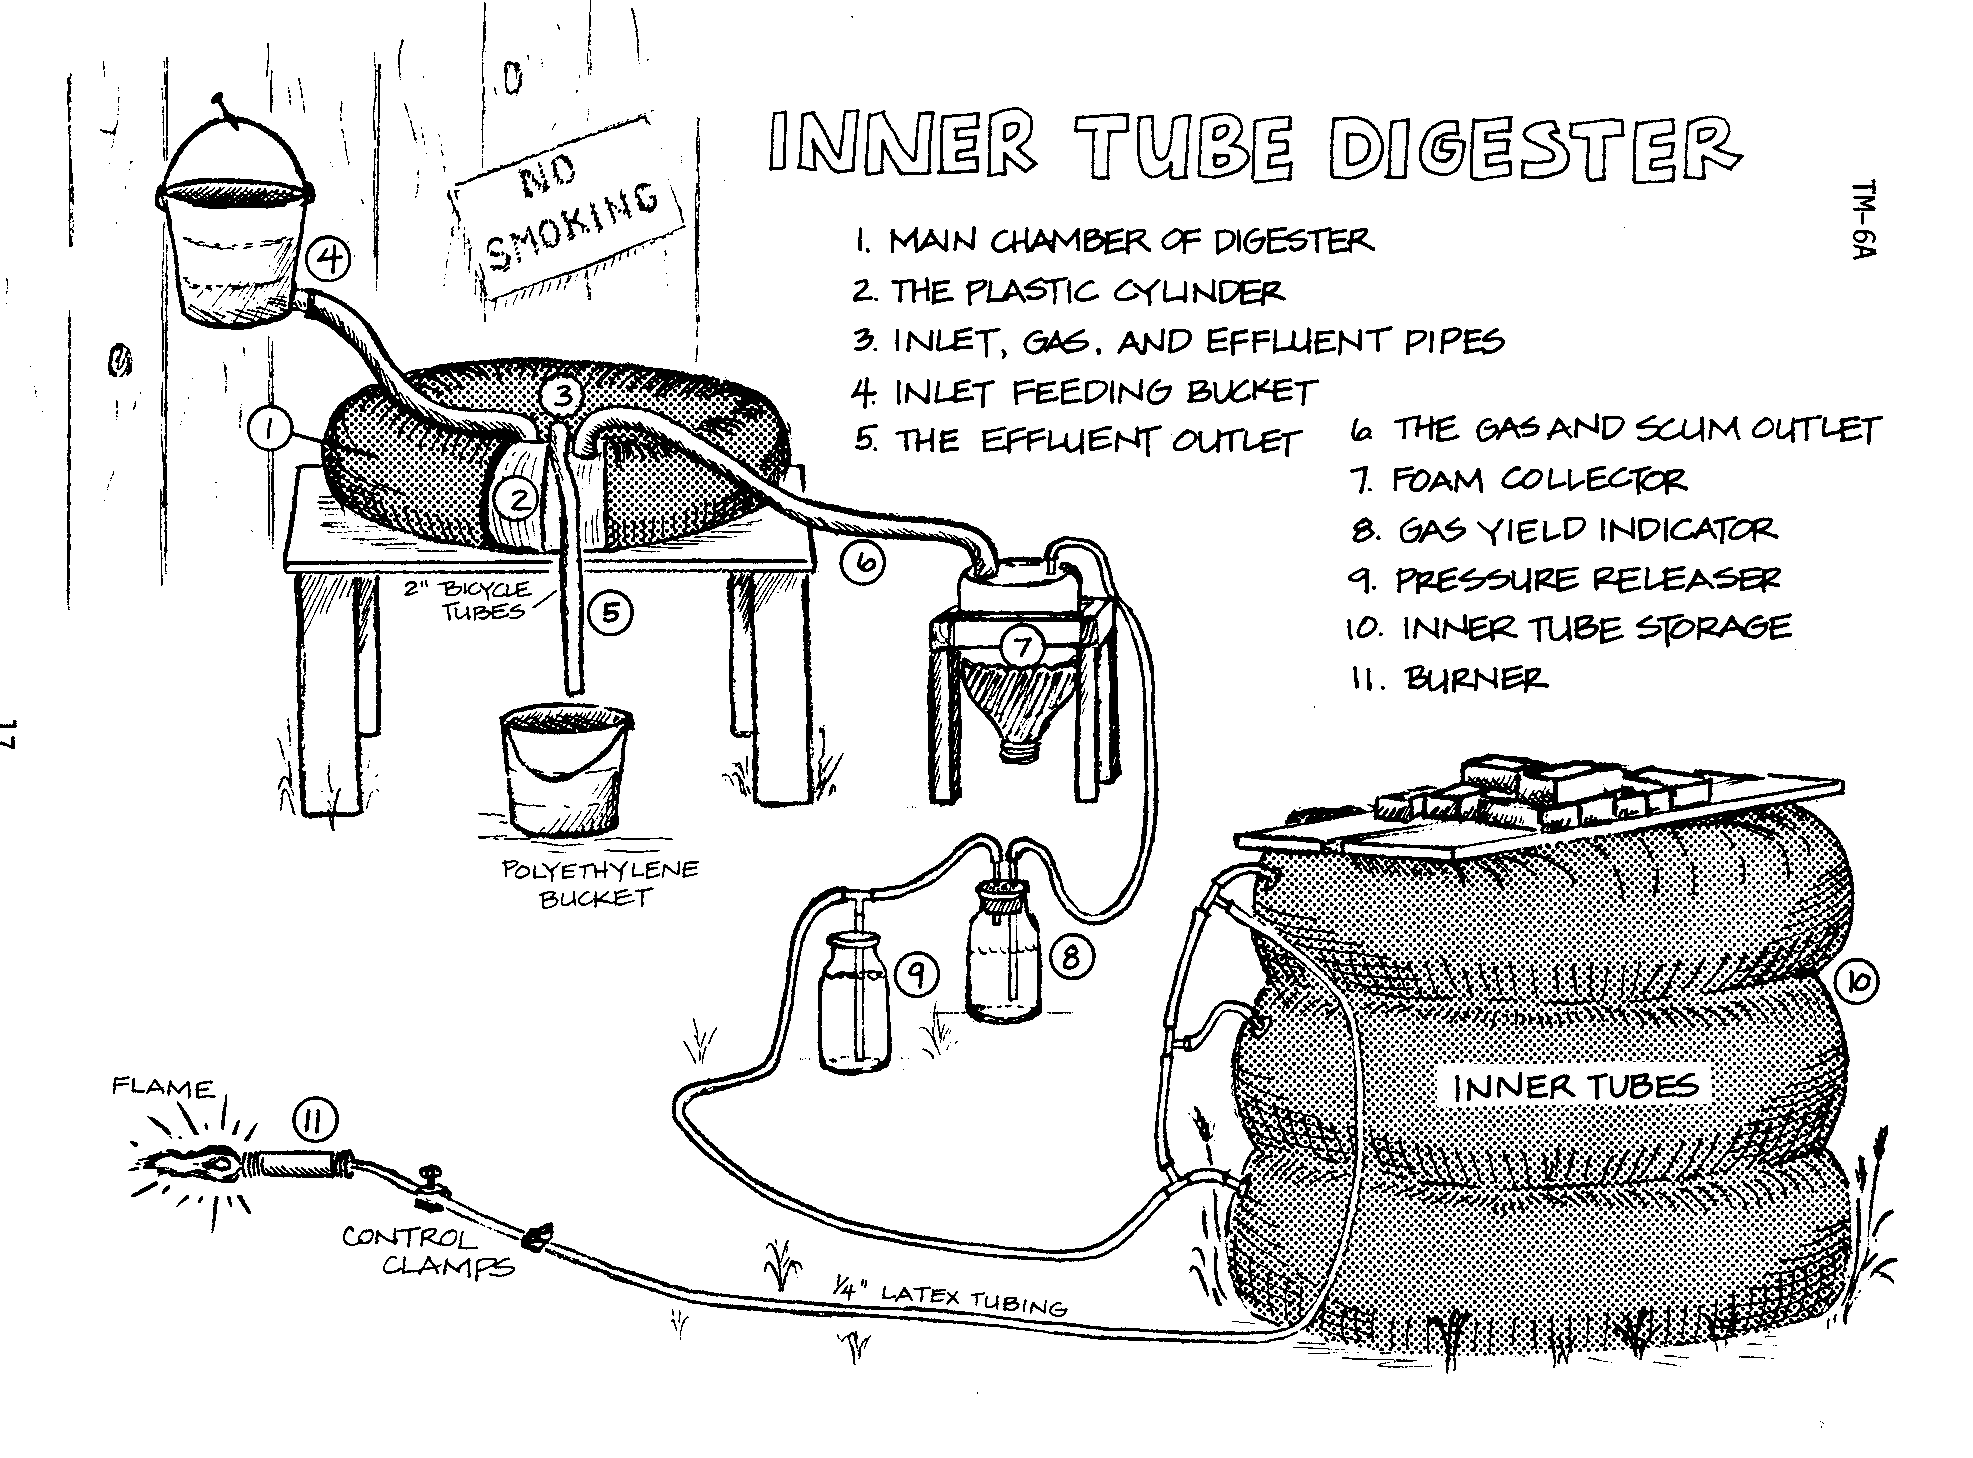 INNER TUBE DIGESTER
TM-6A
NO
SMOKING
1. MAIN CHAMBER OF DIGESTER
2. THE PLASTIC CYLINDER
3. INLET, GAS, AND EFFLUENT PIPES
4. INLET FEEDING BUCKET
5. THE EFFLUENT OUTLET
6 THE GAS AND SCUM OUTLET
7. FOAM COLLECTOR
8. GAS YIELD INDICATOR
9. PRESSURE RELEASER
10. INNER TUBE STORAGE
11. BURNER
4
3
1
2
6
2" BICYCLE
TUBES
5
7
17
POLYETHYLENE
BUCKET
9
8
10
INNER TUBES
FLAME
11
CONTROL
CLAMPS
1/4" LATEX TUBING